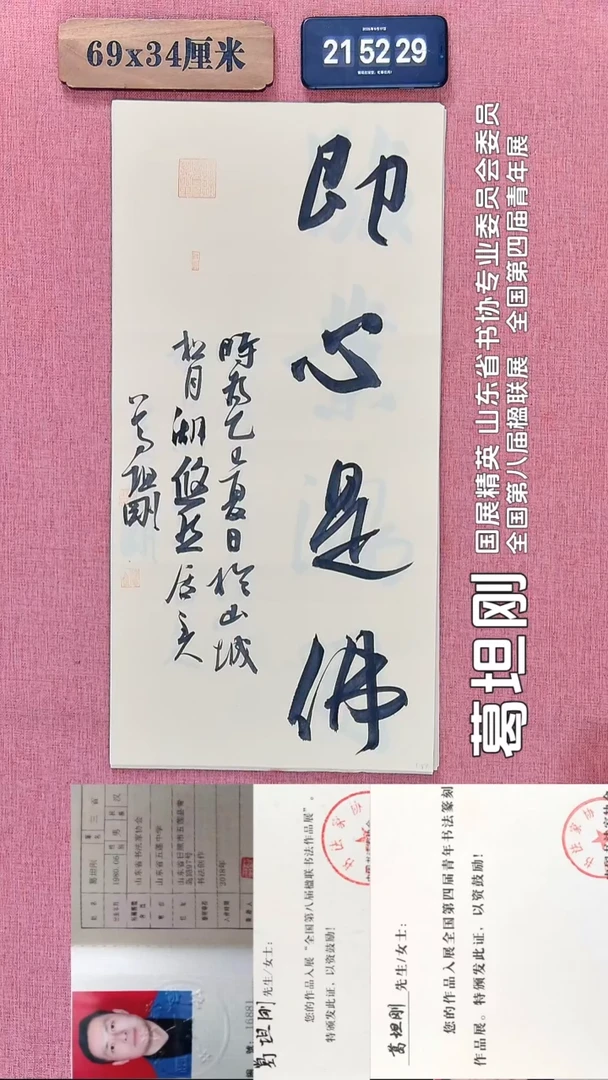 69x34厘米
2026年6月17日
21 52 29
即心是佛
时在乙巳夏日于山城
松月湖悠然居主人
葛坦刚
国展精英 山东省书协专业委员会委员
全国第八届楹联展 全国第四届青年展
葛坦刚
葛坦刚 先生/女士：
您的作品入展"全国第八届楹联书法作品展"。
特颁发此证，以资鼓励！
葛坦刚 先生/女士：
您的作品入展全国第四届青年书法篆刻
作品展。特颁发此证，以资鼓励！
姓名 葛坦刚
山东省书法家协会
山东省五莲中学
书法创作
2018年